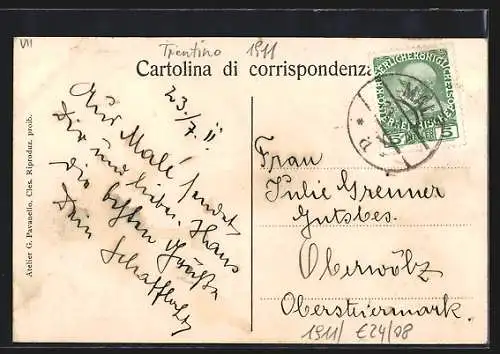 VII
Trentino 1911
Cartolina di corrispondenza
23/7. 11.
Aus Malé sendet
Dir und lieben Hans
die besten Grüße
Dein Schafflhofer
Frau
Julie Grenner
Gutsbes.
Oberwölz
Obersteiermark.
1911/ €24/08
Atelier G. Pavanello, Cles. Riproduz. proib.
5 5